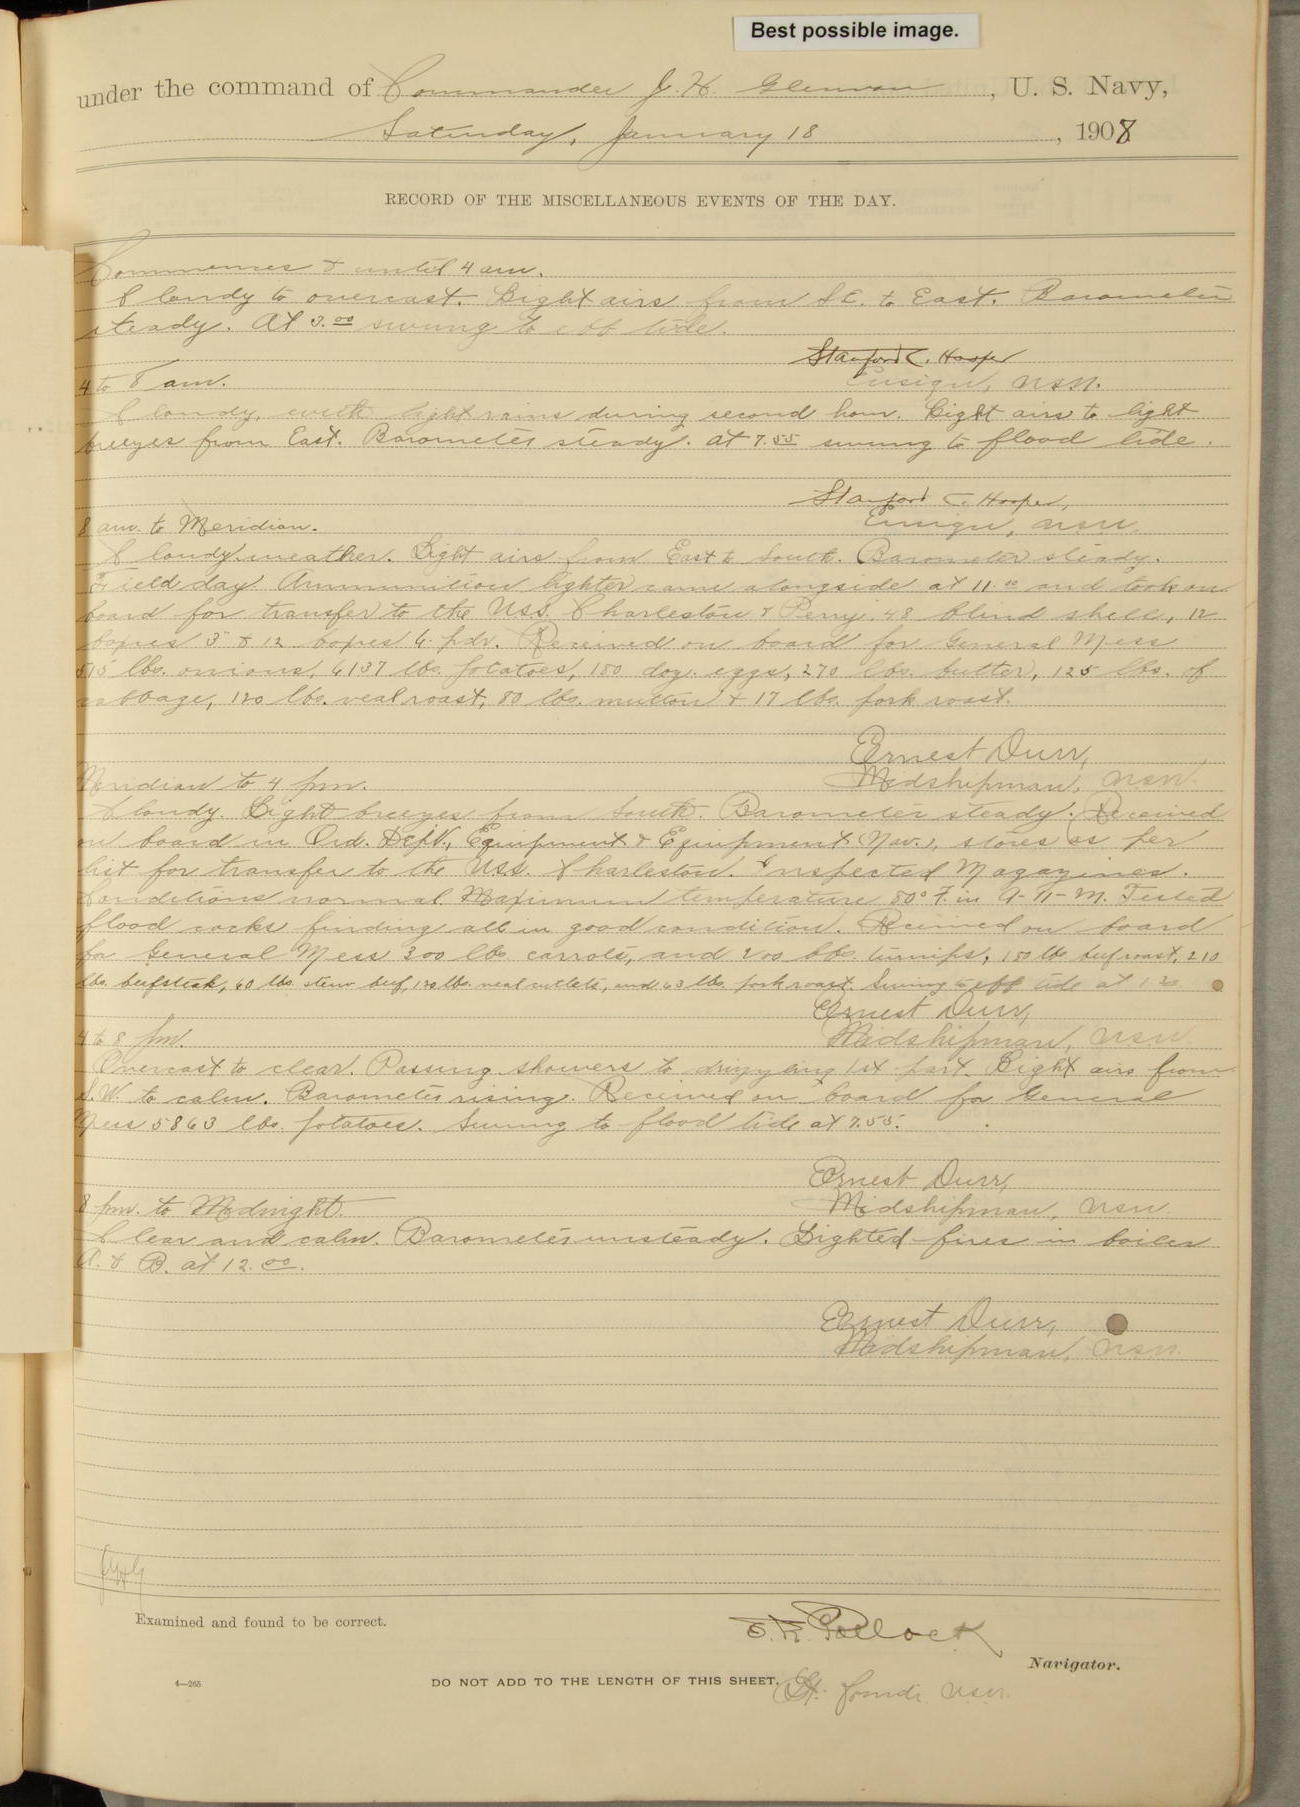 Best possible image.
under the command of Commander J. H. Glennon, U. S. Navy,
Saturday, January 18, 1908
RECORD OF THE MISCELLANEOUS EVENTS OF THE DAY.
Commences & until 4 am.
Cloudy to overcast. Light airs from S.E. to East. Barometer
steady. At 3.00 swung to ebb tide.
Stanford C. Hooper
Ensign, USN.
4 to 8 am.
Cloudy, with light rains during second hour. Light airs to light
breezes from East. Barometer steady. At 7.55 swung to flood tide.
Stanford C. Hooper,
Ensign, USN.
8 am. to Meridian.
Cloudy weather. Light airs from East to South. Barometer steady.
Field day. Ammunition lighter came alongside at 11.00 and took on
board for transfer to the USS. Charleston & Perry. 48 blind shell, 12
boxes 3" & 12 boxes 6 pdr. Received on board for General Mess
515 lbs. onions, 6137 lbs. potatoes, 180 doz. eggs, 270 lbs. butter, 125 lbs. of
cabbage, 120 lbs. veal roast, 80 lbs. mutton & 17 lbs. pork roast.
Ernest Durr,
Midshipman, USN.
Meridian to 4 pm.
Cloudy. Light breezes from South. Barometer steady. Received
on board in Ord. Dept., Equipment & Equipment (Nav.), stores as per
list for transfer to the USS. Charleston. Inspected Magazines.
Conditions normal. Maximum temperature 80° F. in A-11-M. Tested
flood cocks finding all in good condition. Received on board
for General Mess 300 lbs. carrots, and 200 lbs. turnips, 180 lbs beef roast, 210
lbs. beefsteak, 60 lbs stew beef, 120 lbs. veal cutlets, and 63 lbs. pork roast. Swung to ebb tide at 1.20
Ernest Durr,
Midshipman, USN.
4 to 8 pm.
Overcast to clear. Passing showers to drizzling 1st part. Light airs from
S.W. to calm. Barometer rising. Received on board for General
Mess 5863 lbs. potatoes. Swung to flood tide at 7.55.
Ernest Durr,
Midshipman, USN.
8 pm. to Midnight.
Clear and calm. Barometer unsteady. Lighted fires in boiler
A. & B. at 12.00.
Ernest Durr,
Midshipman, USN.
JHG
Examined and found to be correct.
E. R. Pollock
Navigator.
4—265
DO NOT ADD TO THE LENGTH OF THIS SHEET.
Lt. Comdr. USN.